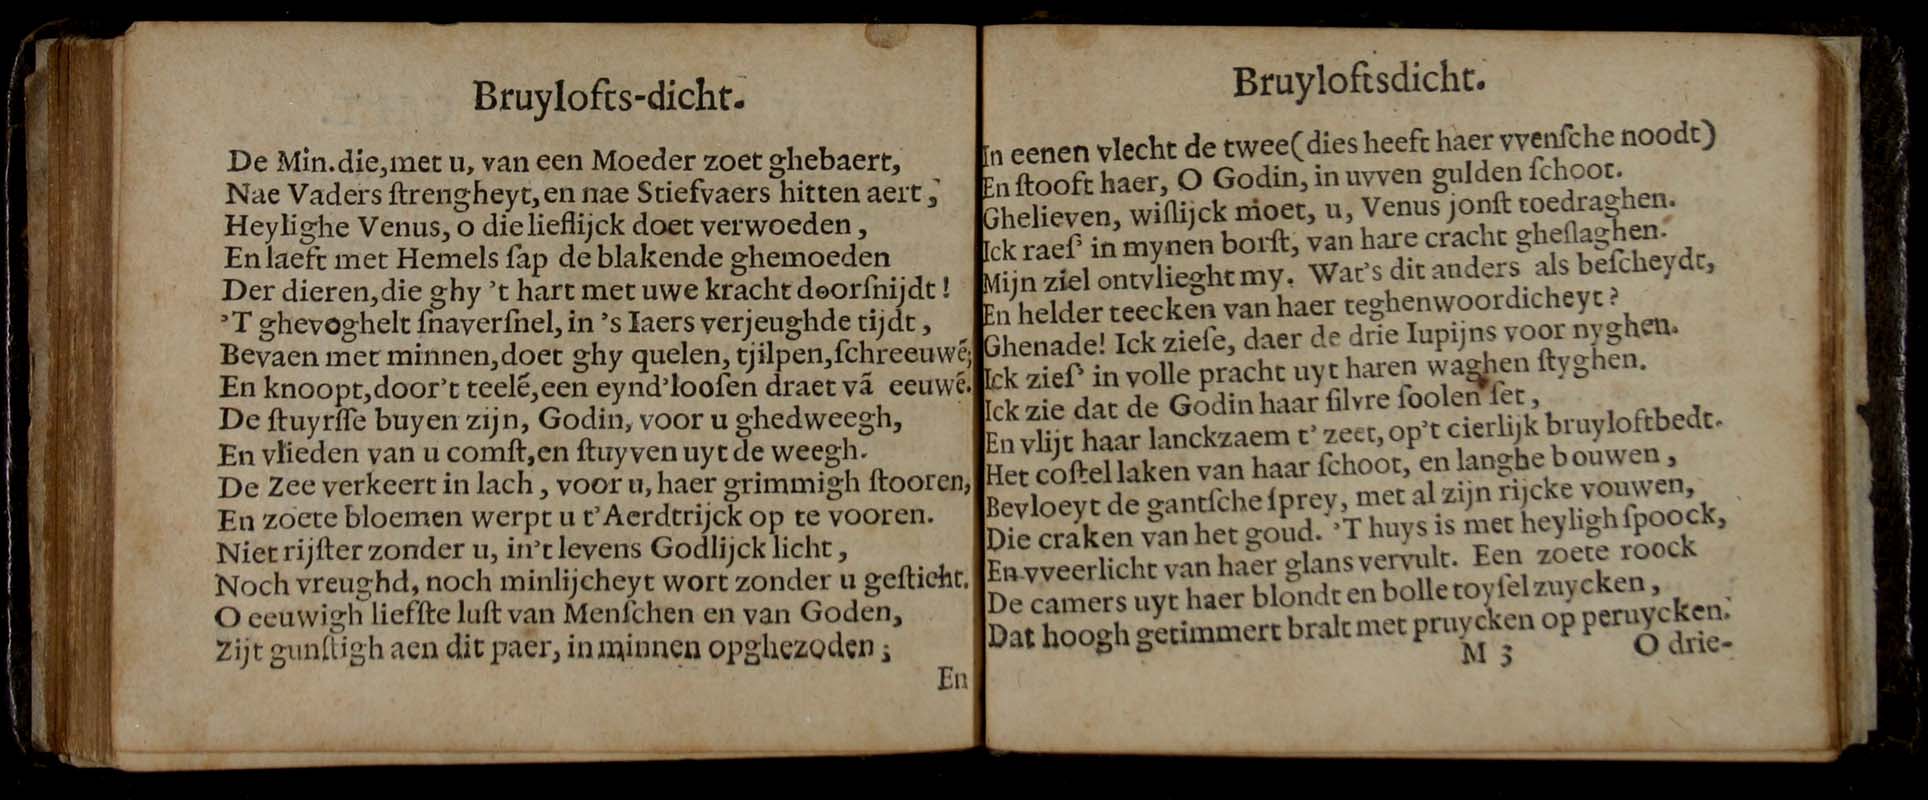 Bruylofts-dicht.
De Min.die,met u, van een Moeder zoet ghebaert,
Nae Vaders ſtrengheyt,en nae Stiefvaers hitten aert,
Heylighe Venus, o die lieflijck doet verwoeden,
En laeft met Hemels ſap de blakende ghemoeden
Der dieren,die ghy 't hart met uwe kracht doorſnijdt!
'T ghevoghelt ſnaverſnel, in 's Iaers verjeughde tijdt,
Bevaen met minnen,doet ghy quelen, tjilpen,ſchreeuwẽ;
En knoopt,door't teelẽ,een eynd'looſen draet vã eeuwẽ.
De ſtuyrſſe buyen zijn, Godin, voor u ghedweegh,
En vlieden van u comſt,en ſtuyven uyt de weegh.
De Zee verkeert in lach, voor u, haer grimmigh ſtooren,
En zoete bloemen werpt u t'Aerdtrijck op te vooren.
Niet rijſter zonder u, in't levens Godlijck licht,
Noch vreughd, noch minlijcheyt wort zonder u geſticht.
O eeuwigh liefſte luſt van Menſchen en van Goden,
Zijt gunſtigh aen dit paer, in minnen opghezoden;
En
Bruyloftsdicht.
In eenen vlecht de twee(dies heeft haer vvenſche noodt)
En ſtooft haer, O Godin, in uvven gulden ſchoot.
Ghelieven, wiſlijck moet, u, Venus jonſt toedraghen.
Ick raeſ' in mynen borſt, van hare cracht gheſlaghen.
Mijn ziel ontvlieght my. Wat's dit anders als beſcheydt,
En helder teecken van haer teghenwoordicheyt?
Ghenade! Ick zieſe, daer de drie Iupijns voor nyghen.
Ick zieſ' in volle pracht uyt haren waghen ſtyghen.
Ick zie dat de Godin haar ſilvre ſoolen ſet,
En vlijt haar lanckzaem t' zeet, op't cierlijk bruyloftbedt.
Het coſtel laken van haar ſchoot, en langhe bouwen,
Bevloeyt de gantſche ſprey, met al zijn rijcke vouwen,
Die craken van het goud. 'T huys is met heyligh ſpoock,
En vveerlicht van haer glans vervult. Een zoete roock
De camers uyt haer blondt en bolle toyſel zuycken,
Dat hoogh getimmert bralt met pruycken op peruycken.
M 3 O drie-